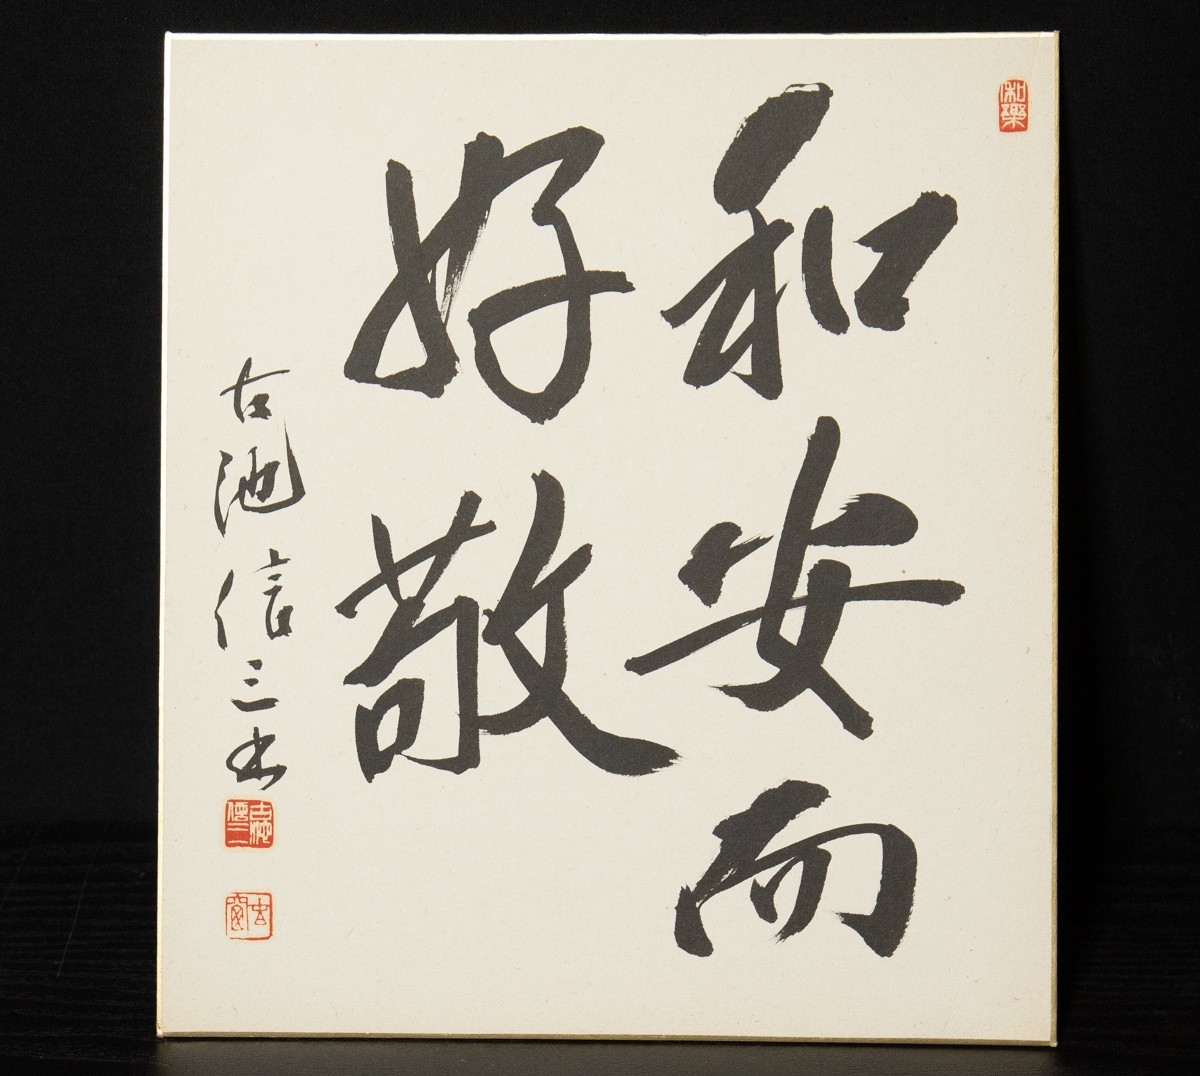 和樂
和安而
好敬
古池信三書
古池信三